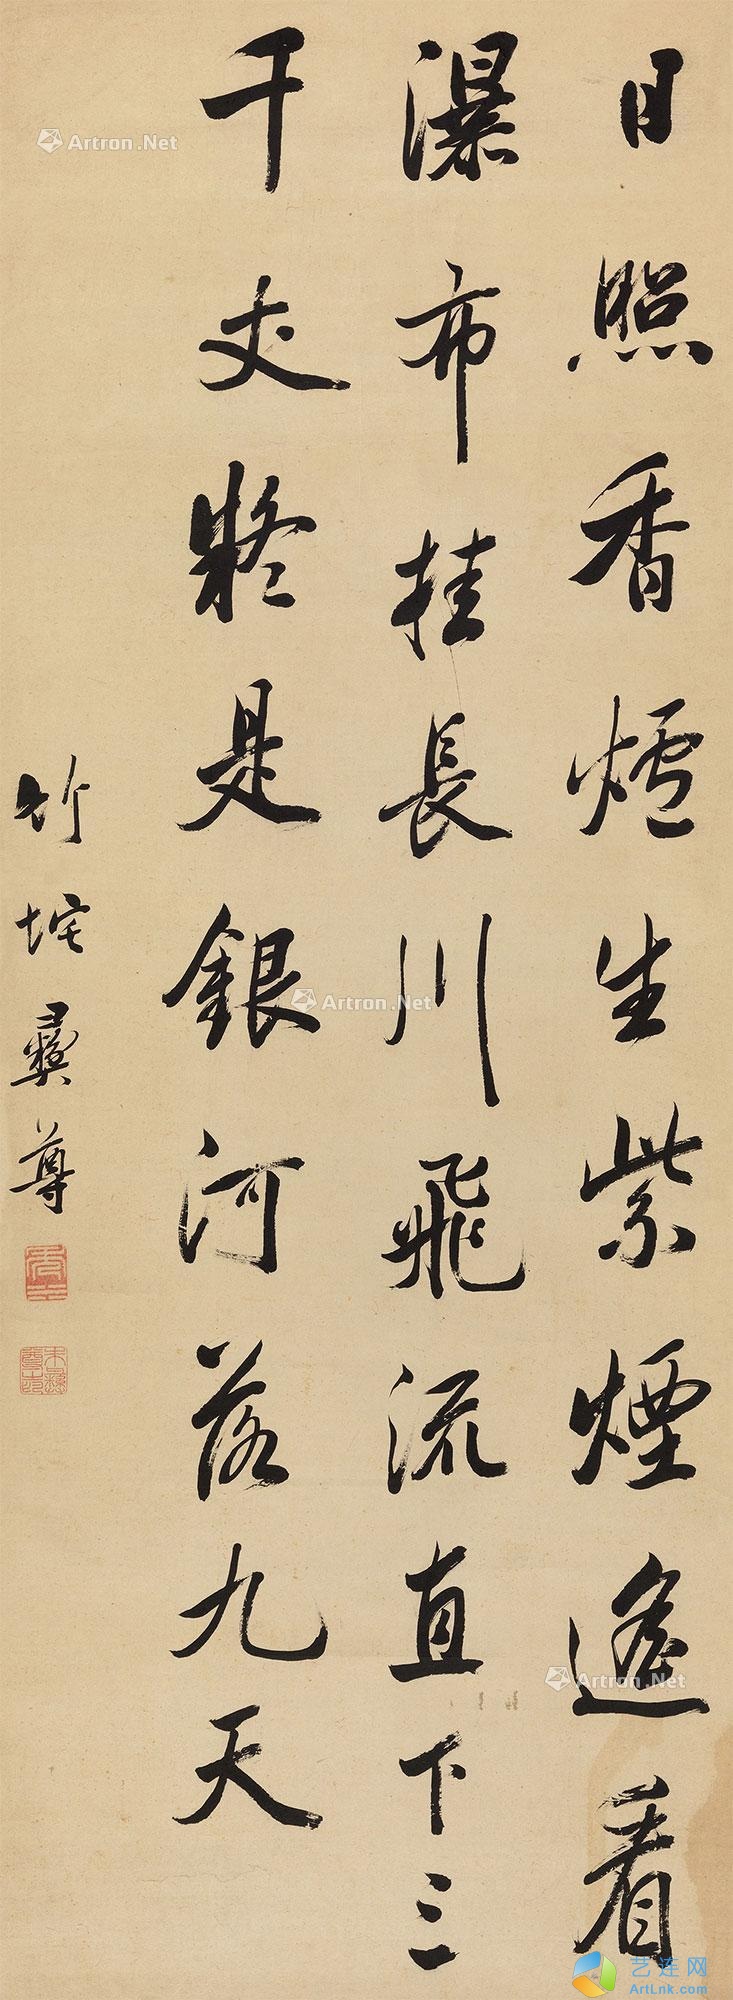 日照香爐生紫煙遙看
瀑布挂長川飛流直下三
千丈疑是銀河落九天
竹垞彝尊
朱彝尊印
Artron.Net
Artron.Net
Artron.Net
艺连网
ArtLnk.com